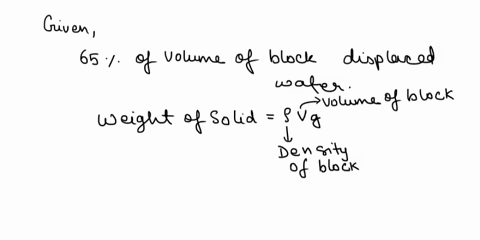 Given,
65 % of volume of block displaced
water.
→ volume of block
weight of Solid = ρ V g
↓
Density
of block